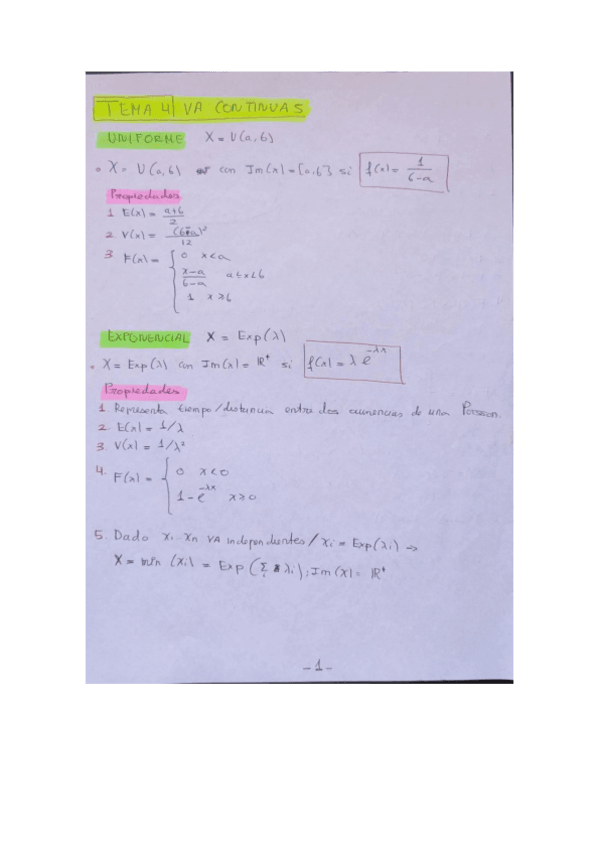 TEMA 4 VA CONTINUAS
UNIFORME X = U(a,b)
• X = U(a,b) con Im(x) = [a,b] si f(x) = 1/(b-a)
Propiedades
1 E(x) = (a+b)/2
2 V(x) = (b-a)²/12
3 F(x) = { 0 x<a
(x-a)/(b-a) a≤x<b
1 x≥b
EXPONENCIAL X = Exp(λ)
• X = Exp(λ) con Im(x) = ℝ⁺ si f(x) = λ e^(-λx)
Propiedades
1. Representa tiempo/distancia entre dos ocurrencias de una Poisson.
2 E(x) = 1/λ
3. V(x) = 1/λ²
4. F(x) = { 0 x<0
1 - e^(-λx) x≥0
5. Dado x₁...xn VA independientes / xi = Exp(λi) ⇒
X = min (xi) = Exp (Σ λi); Im(X) = ℝ⁺
- 1 -